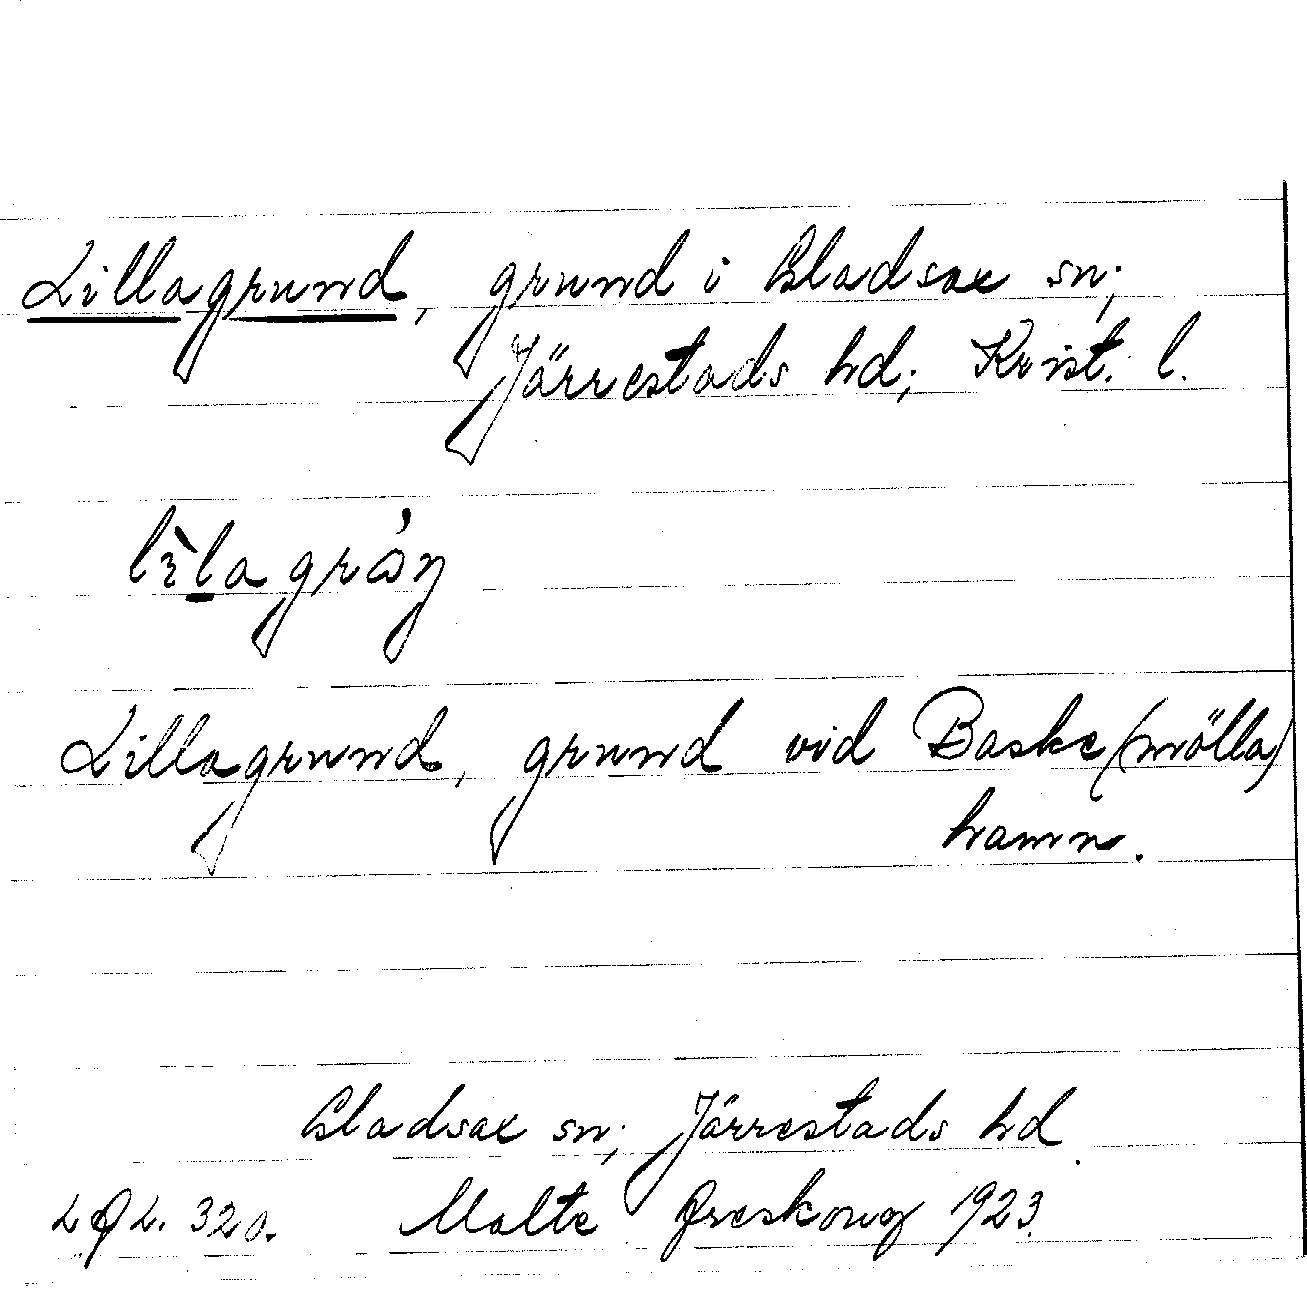 Lillagrund, grund i Gladsax sn;
Järrestads hd; Krist. l.
Lillagrund, grund vid Baske(mölla)
hamn.
Gladsax sn; Järrestads hd.
320. Malte 1923.